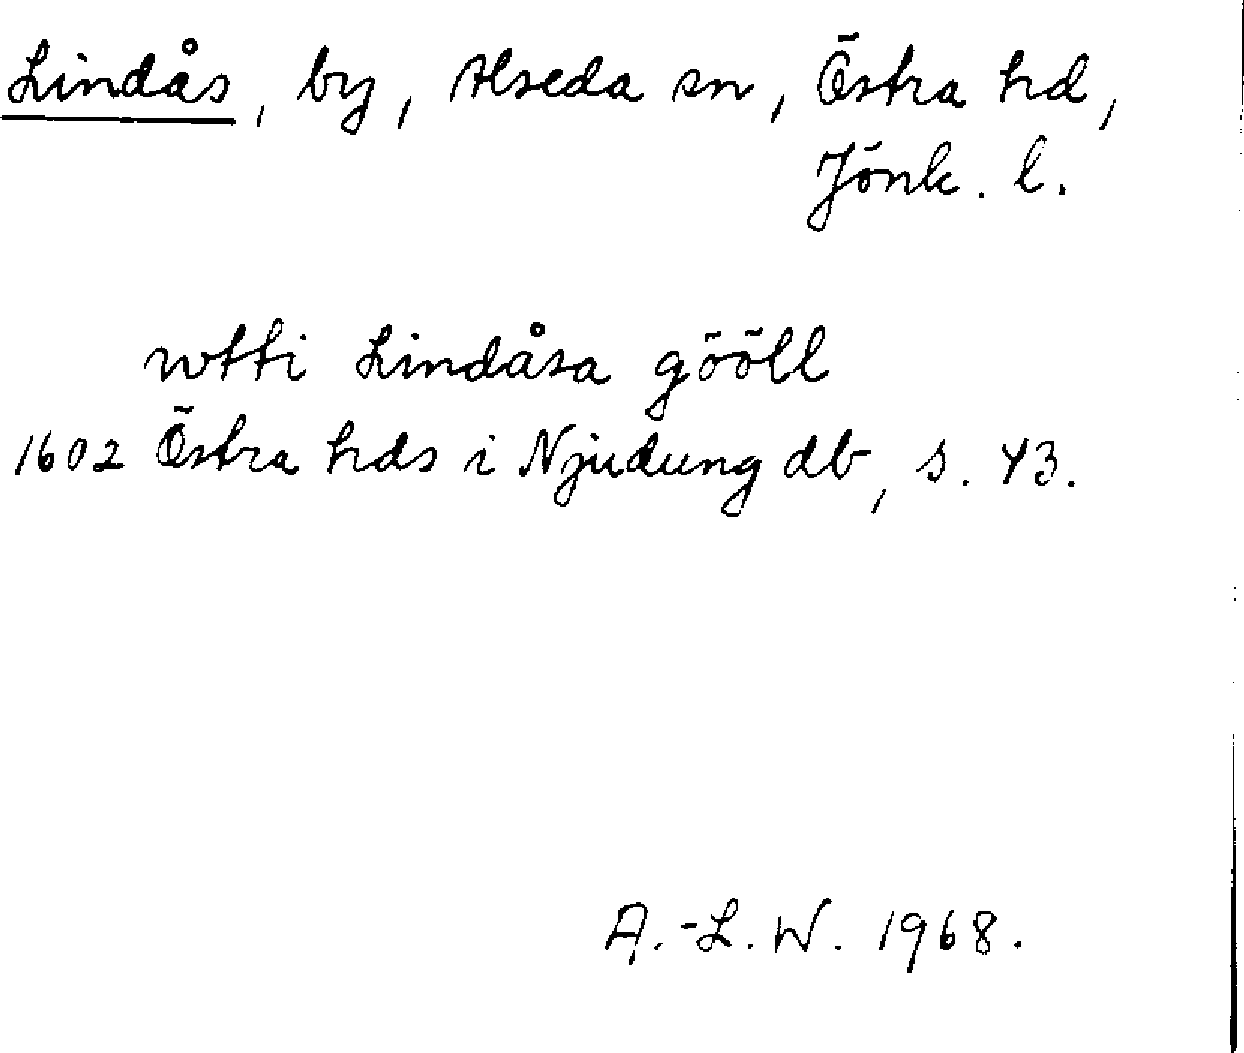 Lindås, by, Alseda sn, Östra hd,
Jönk. l.
wtti Lindåsa gööll
1602 Östra hds i Njudung db, s. 43.
A.-L. W. 1968.